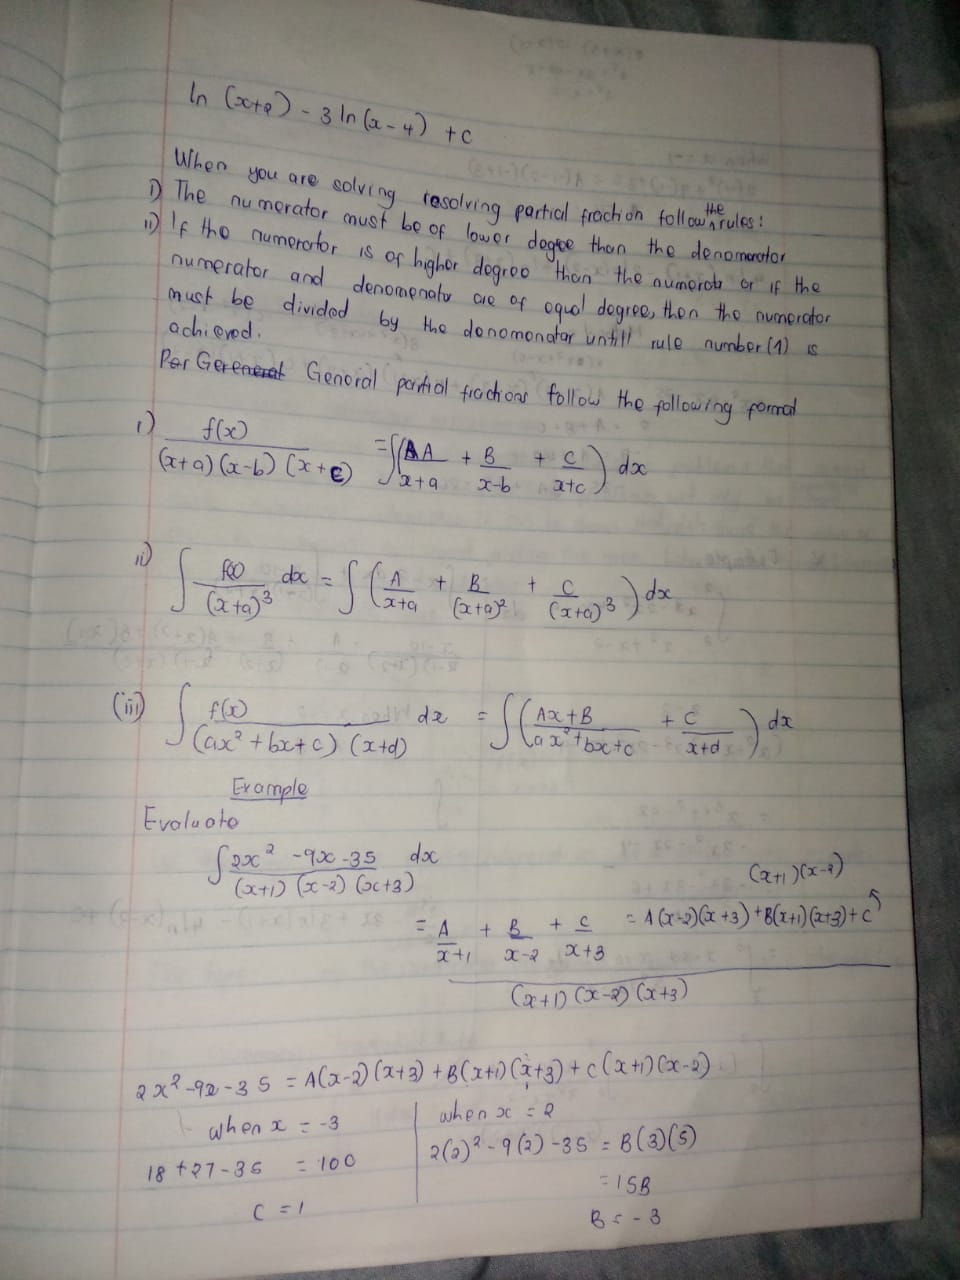 ln (x+2) - 3 ln (x-4) + c
When you are solving resolving partial fraction follow the rules:
i) The numerator must be of lower degree than the denomenator
ii) If the numerator is of higher degree than the numerator or if the
numerator and denomenator are of equal degree, then the numerator
must be divided by the denomenator untill rule number (1) is
achieved.
General partial fractions follow the following format
i) f(x) / (x+a)(x-b)(x+c) = ∫(A/x+a + B/x-b + C/x+c) dx
ii) ∫ f(x)/(x+a)³ dx = ∫ (A/x+a + B/(x+a)² + C/(x+a)³) dx
(iii) ∫ f(x)/(ax²+bx+c)(x+d) dx = ∫(Ax+B/ax²+bx+c + C/x+d) dx
Example
Evaluate
∫ 2x²-9x-35 / (x+1)(x-2)(x+3) dx
= A/x+1 + B/x-2 + C/x+3 = A(x-2)(x+3)+B(x+1)(x+3)+C (x+1)(x-2)
(x+1)(x-2)(x+3)
2x²-9x-35 = A(x-2)(x+3)+B(x+1)(x+3)+C(x+1)(x-2)
when x = -3
18+27-35 = 10C
C = 1
when x = 2
2(2)²-9(2)-35 = B(3)(5)
= 15B
B = -3